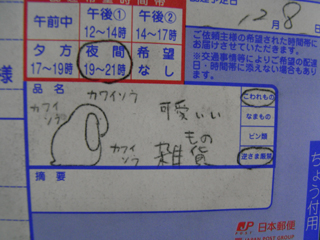 希望時間帯
12月8日
午前中 午後① 12〜14時 午後② 14〜17時
夕方 17〜19時 夜間 19〜21時 希望なし
ご依頼主様の希望された時間帯に
お届けさせていただきます。
※交通事情等によりご希望の配達
日・時間帯に添えない場合もあり
ます。
様
品名
カワイソウ
カワイソウ
カワイソウ
可愛いい
もの
雑貨
こわれもの
なまもの
ビン類
逆さま厳禁
摘要
ちょう付用
JP 日本郵便
POST JAPAN POST GROUP